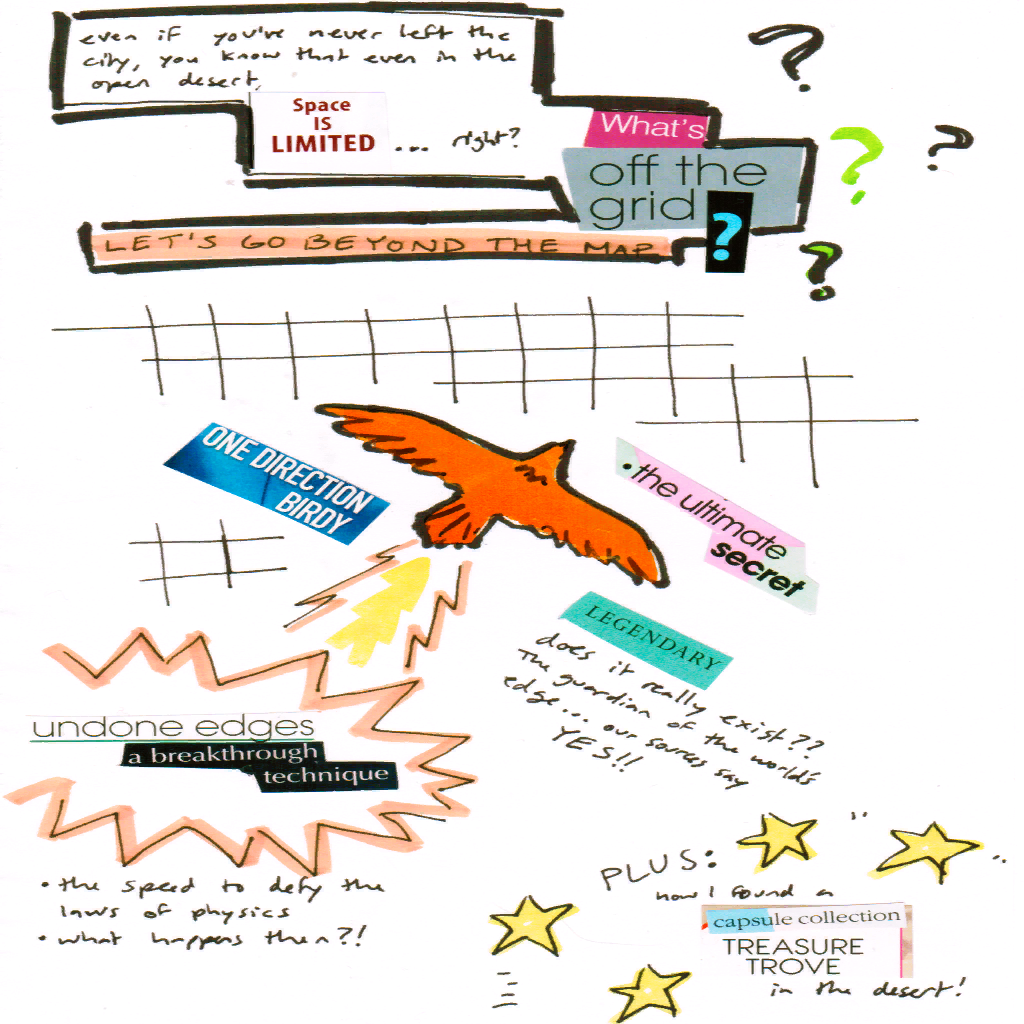 even if you've never left the
city, you know that even in the
open desert,
Space
IS
LIMITED
... right?
What's
off the
grid
?
LET'S GO BEYOND THE MAP
? ? ? ?
ONE DIRECTION
BIRDY
• the ultimate
secret
LEGENDARY
does it really exist??
The guardian of the world's
edge... our sources say
YES!!
undone edges
a breakthrough
technique
• the speed to defy the
laws of physics
• what happens then?!
PLUS:
how I found a
capsule collection
TREASURE
TROVE
in the desert!